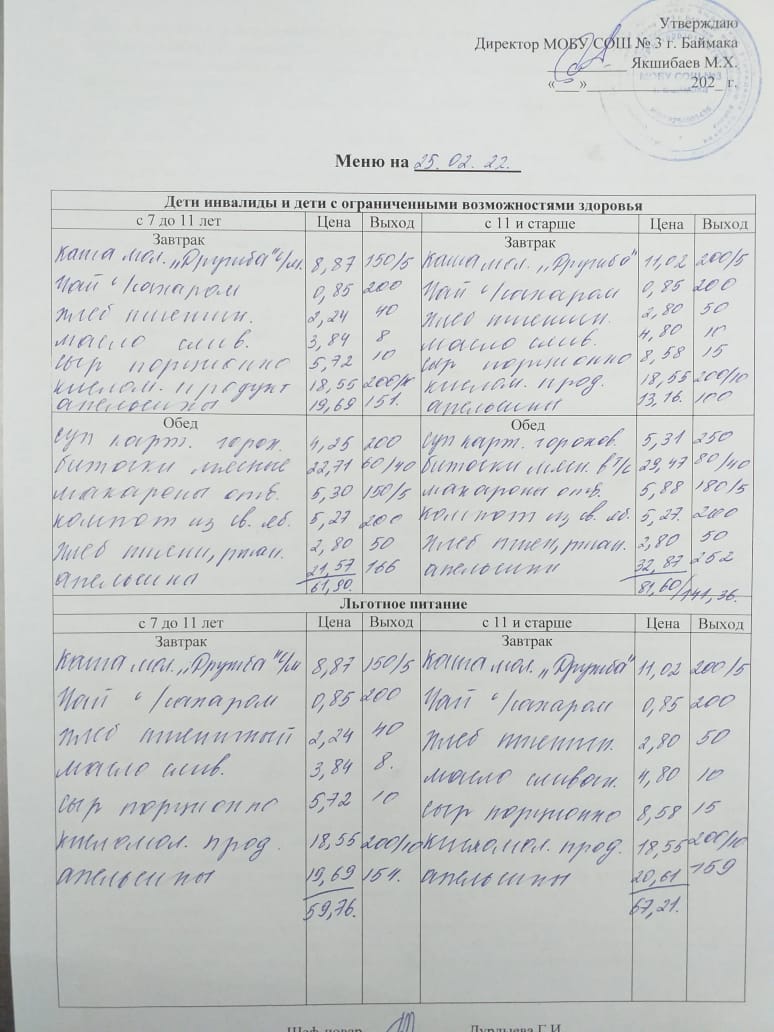 Утверждаю
Директор МОБУ СОШ № 3 г. Баймака
Якшибаев М.Х.
«___»____________202_ г.
Меню на 25. 02. 22.
Дети инвалиды и дети с ограниченными возможностями здоровья
с 7 до 11 лет Цена Выход с 11 и старше Цена Выход
Завтрак Завтрак
Каша мол. „Дружба" с/м. 8,87 150/5 Каша мол. „Дружба" 11,02 200/5
Чай с/сахаром 0,85 200 Чай с/сахаром 0,85 200
Хлеб пшеничн. 2,24 40 Хлеб пшеничн. 2,80 50
масло слив. 3,84 8 масло слив. 4,80 10
сыр порционно 5,72 10 сыр порционно 8,58 15
кислом. продукт 18,55 200/10 кислом. прод. 18,55 200/10
апельсины 19,69 151. апельсины 13,16. 100
Обед Обед
суп карт. горох. 4,25 200 суп карт. горохов. 5,31 250
биточки мясные 22,71 60/40 биточки мясн. в т/с 29,47 80/40
макароны отв. 5,30 150/5 макароны отв. 5,88 180/5
компот из св. яб. 5,27 200 компот из св. яб. 5,27. 200
Хлеб пшен, ржан. 2,80 50 Хлеб пшен, ржан. 2,80 50
апельсина 21,57 166 апельсины 32,87 252
61,90. 81,60/141,36.
Льготное питание
с 7 до 11 лет Цена Выход с 11 и старше Цена Выход
Завтрак Завтрак
Каша мол. „Дружба" с/м 8,87 150/5 Каша мол. „Дружба" 11,02 200/5
Чай с/сахаром 0,85 200 Чай с/сахаром 0,85 200
Хлеб пшеничный 2,24 40 Хлеб пшеничн. 2,80 50
масло слив. 3,84 8. масло сливоч. 4,80 10
сыр порционно 5,72 10 сыр порционно 8,58 15
кисломол. прод. 18,55 200/10 кисломол. прод. 18,55 200/10
апельсины 19,69 151. апельсины 20,61 159
59,76. 67,21.
Шеф-повар Дурдыева Г.И.